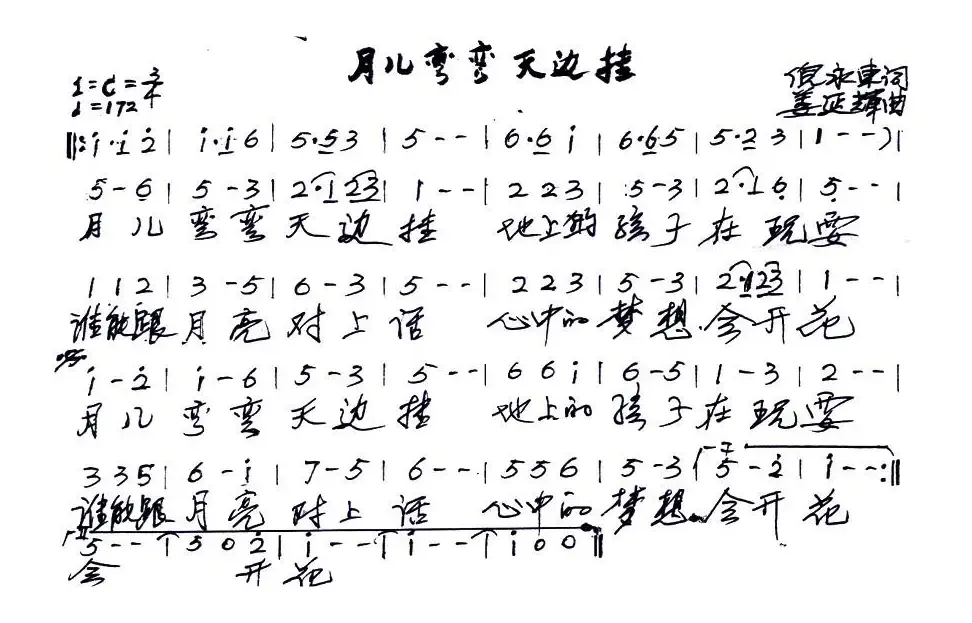 月儿弯弯天边挂
1=C=3/4
♩=172
倪永东词
姜延辉曲
‖: i·i 2̇ | i·i 6 | 5·5 3 | 5 - - | 6·6 i | 6·6 5 | 5·2 3 | 1 - - ) |
5 - 6 | 5 - 3 | 2·1 23 | 1 - - | 2 2 3 | 5 - 3 | 2·1 6̣ | 5̣ - - |
月儿弯弯天边挂 地上的孩子在玩耍
1 1 2 | 3 - 5 | 6 - 3 | 5 - - | 2 2 3 | 5 - 3 | 2·1 23 | 1 - - |
谁能跟月亮对上话 心中的梦想会开花
i - 2̇ | i - 6 | 5 - 3 | 5 - - | 6 6 i | 6 - 5 | 1 - 3 | 2 - - |
月儿弯弯天边挂 地上的孩子在玩耍
3 3 5 | 6 - i | 7 - 5 | 6 - - | 5 5 6 | 5 - 3 | 5 - 2̇ | i - - :‖
谁能跟月亮对上话 心中的梦想会开花
5 - - | 5 0 2̇ | i - - | i - - | i 0 0 ‖
会 开花